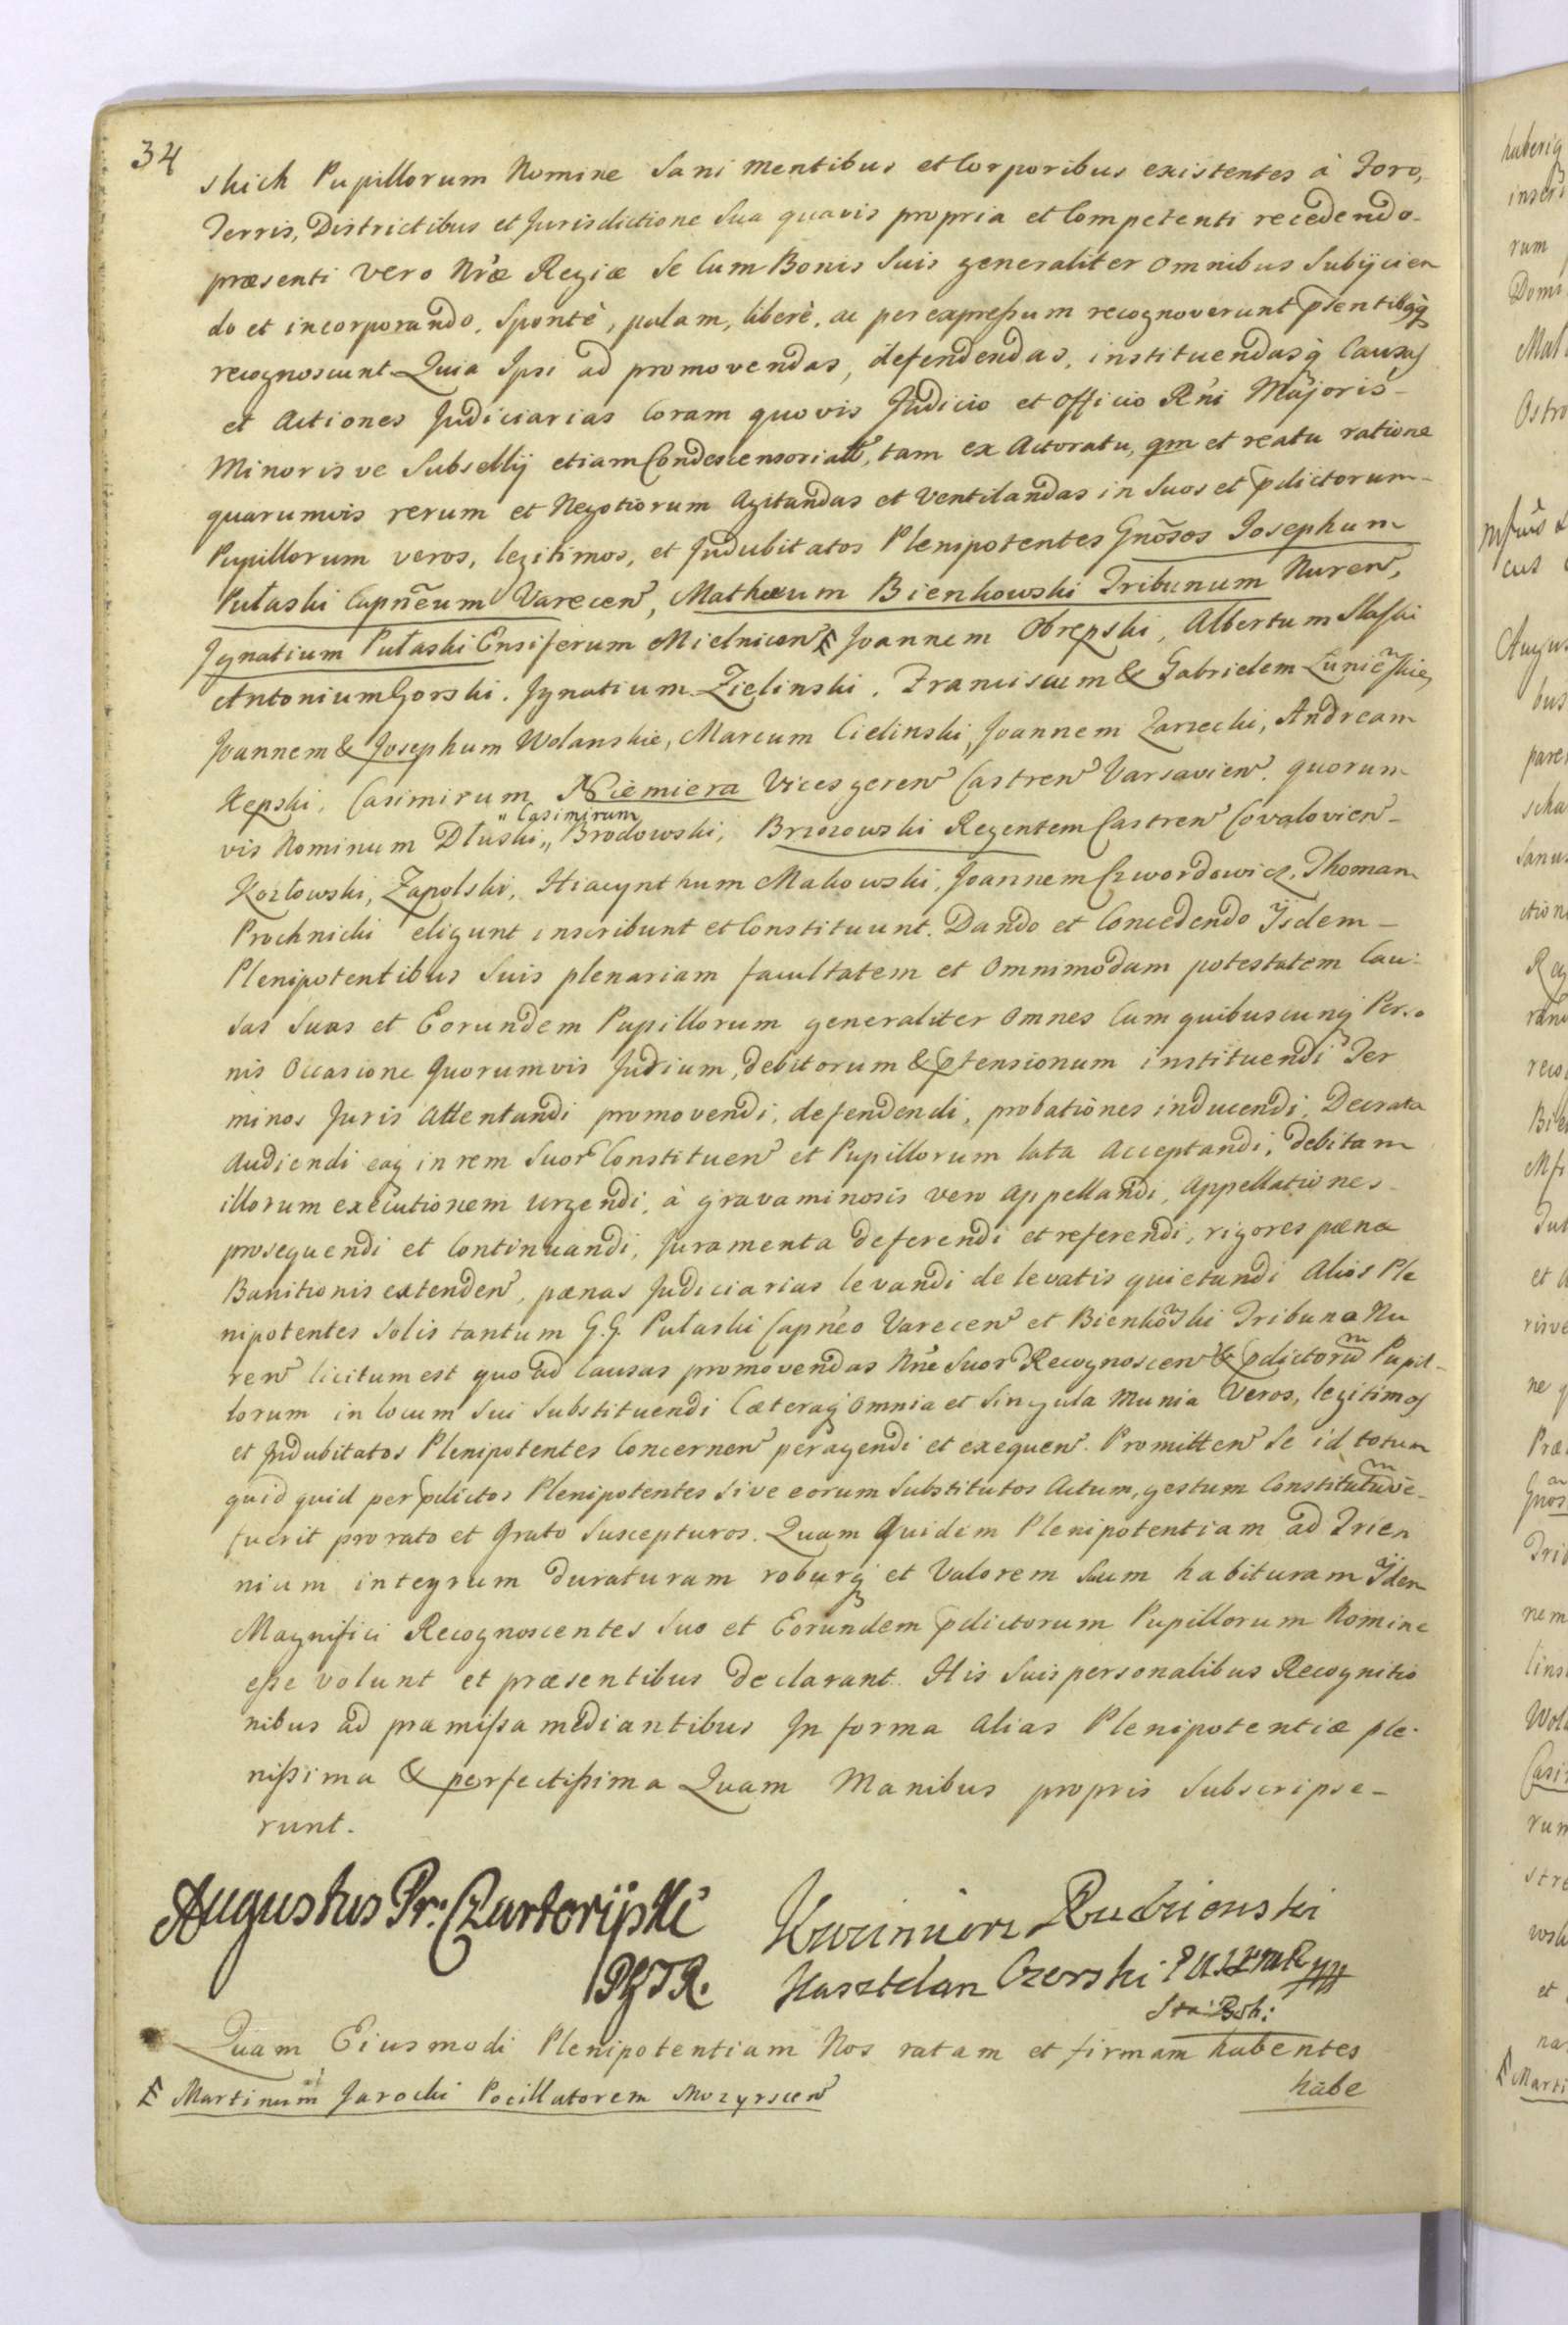 34
skich Pupillorum Nomine Sani mentibus et Corporibus existentes à Foro,
Terris, Districtibus et Jurisdictione Sua quavis propria et Competenti recedendo
præsenti vero Nræ Regiæ Se Cum Bonis Suis generaliter omnibus Subijcien
do et incorporando, Spontè, palam, liberè, ac per expreßum recognoverunt pñtibqꝫ
recognoscunt Quia Ipsi ad promovendas, defendendas, instituendasq Causas
et Actiones Judiciarias Coram quovis Judicio et Officio Rñi Majoris
Minoris ve Subsellij etiam Condescensoriali, tam ex Actoratu, qm et reatu ratione
quarumvis rerum et Negotiorum Agitandas et Ventilandas in Suos et pdictorum
Pupillorum veros, legitimos, et Indubitatos Plenipotentes Gnõsos Josephum
Pułaski Capnẽum Varecen, Mathæum Bienkowski Tribunum Nuren,
Ignatium Pułaski Ensiferum Mielnicen Ƒ Joannem Obrępski, Albertum Slaski
Antonium Gorski, Ignatium Zielinski, Franciscum & Gabrielem Luniẽskie,
Joannem & Josephum Wolanskie, Marcum Cielinski, Joannem Zarzecki, Andream
Kępski, Casimirum Niemiera Vices geren Castren Varsavien, quorum
„ Casimirum
vis Nominum Dłuski „ Brodowski, Brzozowski Regentem Castren Covalovien
Kozłowski, Zapolski, Hiacynthum Makowski, Joannem Czwordowicz, Thomam
Prochnicki eligunt inscribunt et Constituunt. Dando et Concedendo Ijsdem
Plenipotentibus Suis plenariam facultatem et Omnimodam potestatem Cau
sas Suas et Eorundem Pupillorum generaliter Omnes Cum quibuscunq Perso
nis Occasione Quorumvis Judium, debitorum & ptensionum instituendi Ter
minos Juris Attentandi promovendi, defendendi, probationes inducendi, Decreta
Audiendi eaq in rem Suor Constituen et Pupillorum lata Acceptandi, debitam
illorum executionem Urgendi, à gravaminosis vero Appellandi, Appellationes
prosequendi et Continuandi, Juramenta deferendi et referendi, rigores pæna
Banitionis extenden, pænas Judiciarias levandi de levatis quietandi Alios Ple
nipotentes Solis tantum G.G. Pułaski Capnẽo Varecen et Bienkõski Tribuno Nu
ren licitum est quo ad Causas promovendas Nñe Suor Recognoscen & pdictorũ Pupil
lorum in locum Sui Substituendi Cæteraq Omnia et Singula Munia Veros, legitimos
et Indubitatos Plenipotentes Concernen peragendi et exequen. Promitten Se id totum
quid quid per pdictos Plenipotentes Sive eorum Substitutos Actum, gestum Constitutũ ve
fuerit pro rato et Grato Suscepturos. Quam Quidem Plenipotentiam ad Trien
nium integrum duraturam roburq et Valorem Suum habituram Ijdem
Magnifici Recognoscentes Suo et Eorundem pdictorum Pupillorum Nomine
eße volunt et præsentibus declarant. His Suis personalibus Recognitio
nibus ad pramißa mediantibus In forma Alias Plenipotentiæ ple
nißima & perfectißima Quam Manibus propris Subscripse
runt.
Augustus Pr: Czartoryski
Kazimierz Rudzienski
Kasztelan Czerski
Quam Eiusmodi Plenipotentiam Nos ratam et firmam habentes
habe
Ƒ Martinum Jarocki Pocillatorem Mozyrscen